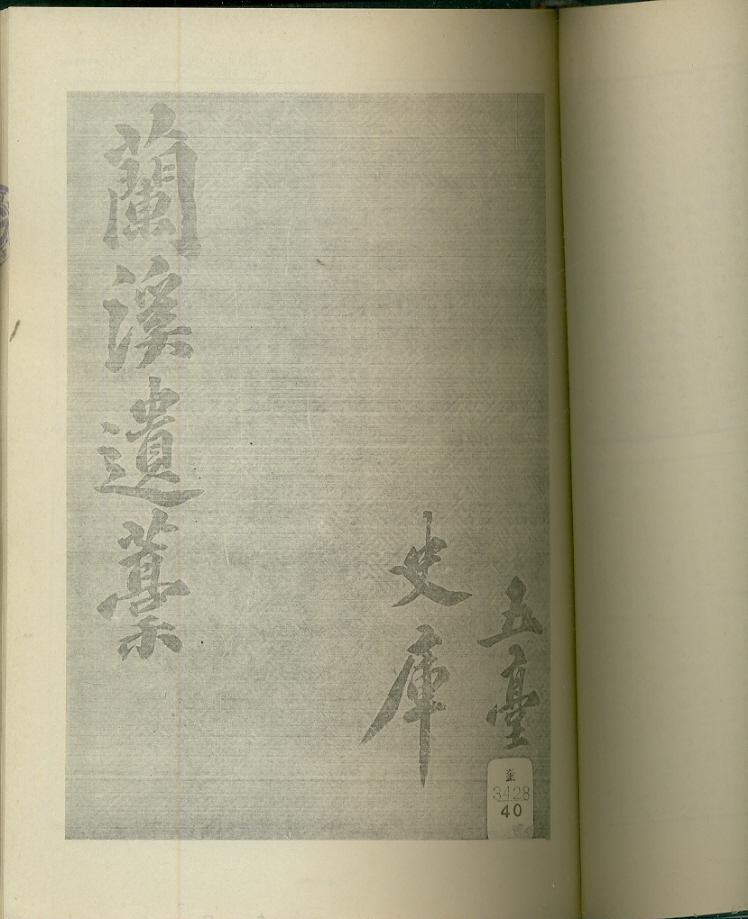 五臺
史庫
蘭溪遺藁
奎
3428
40